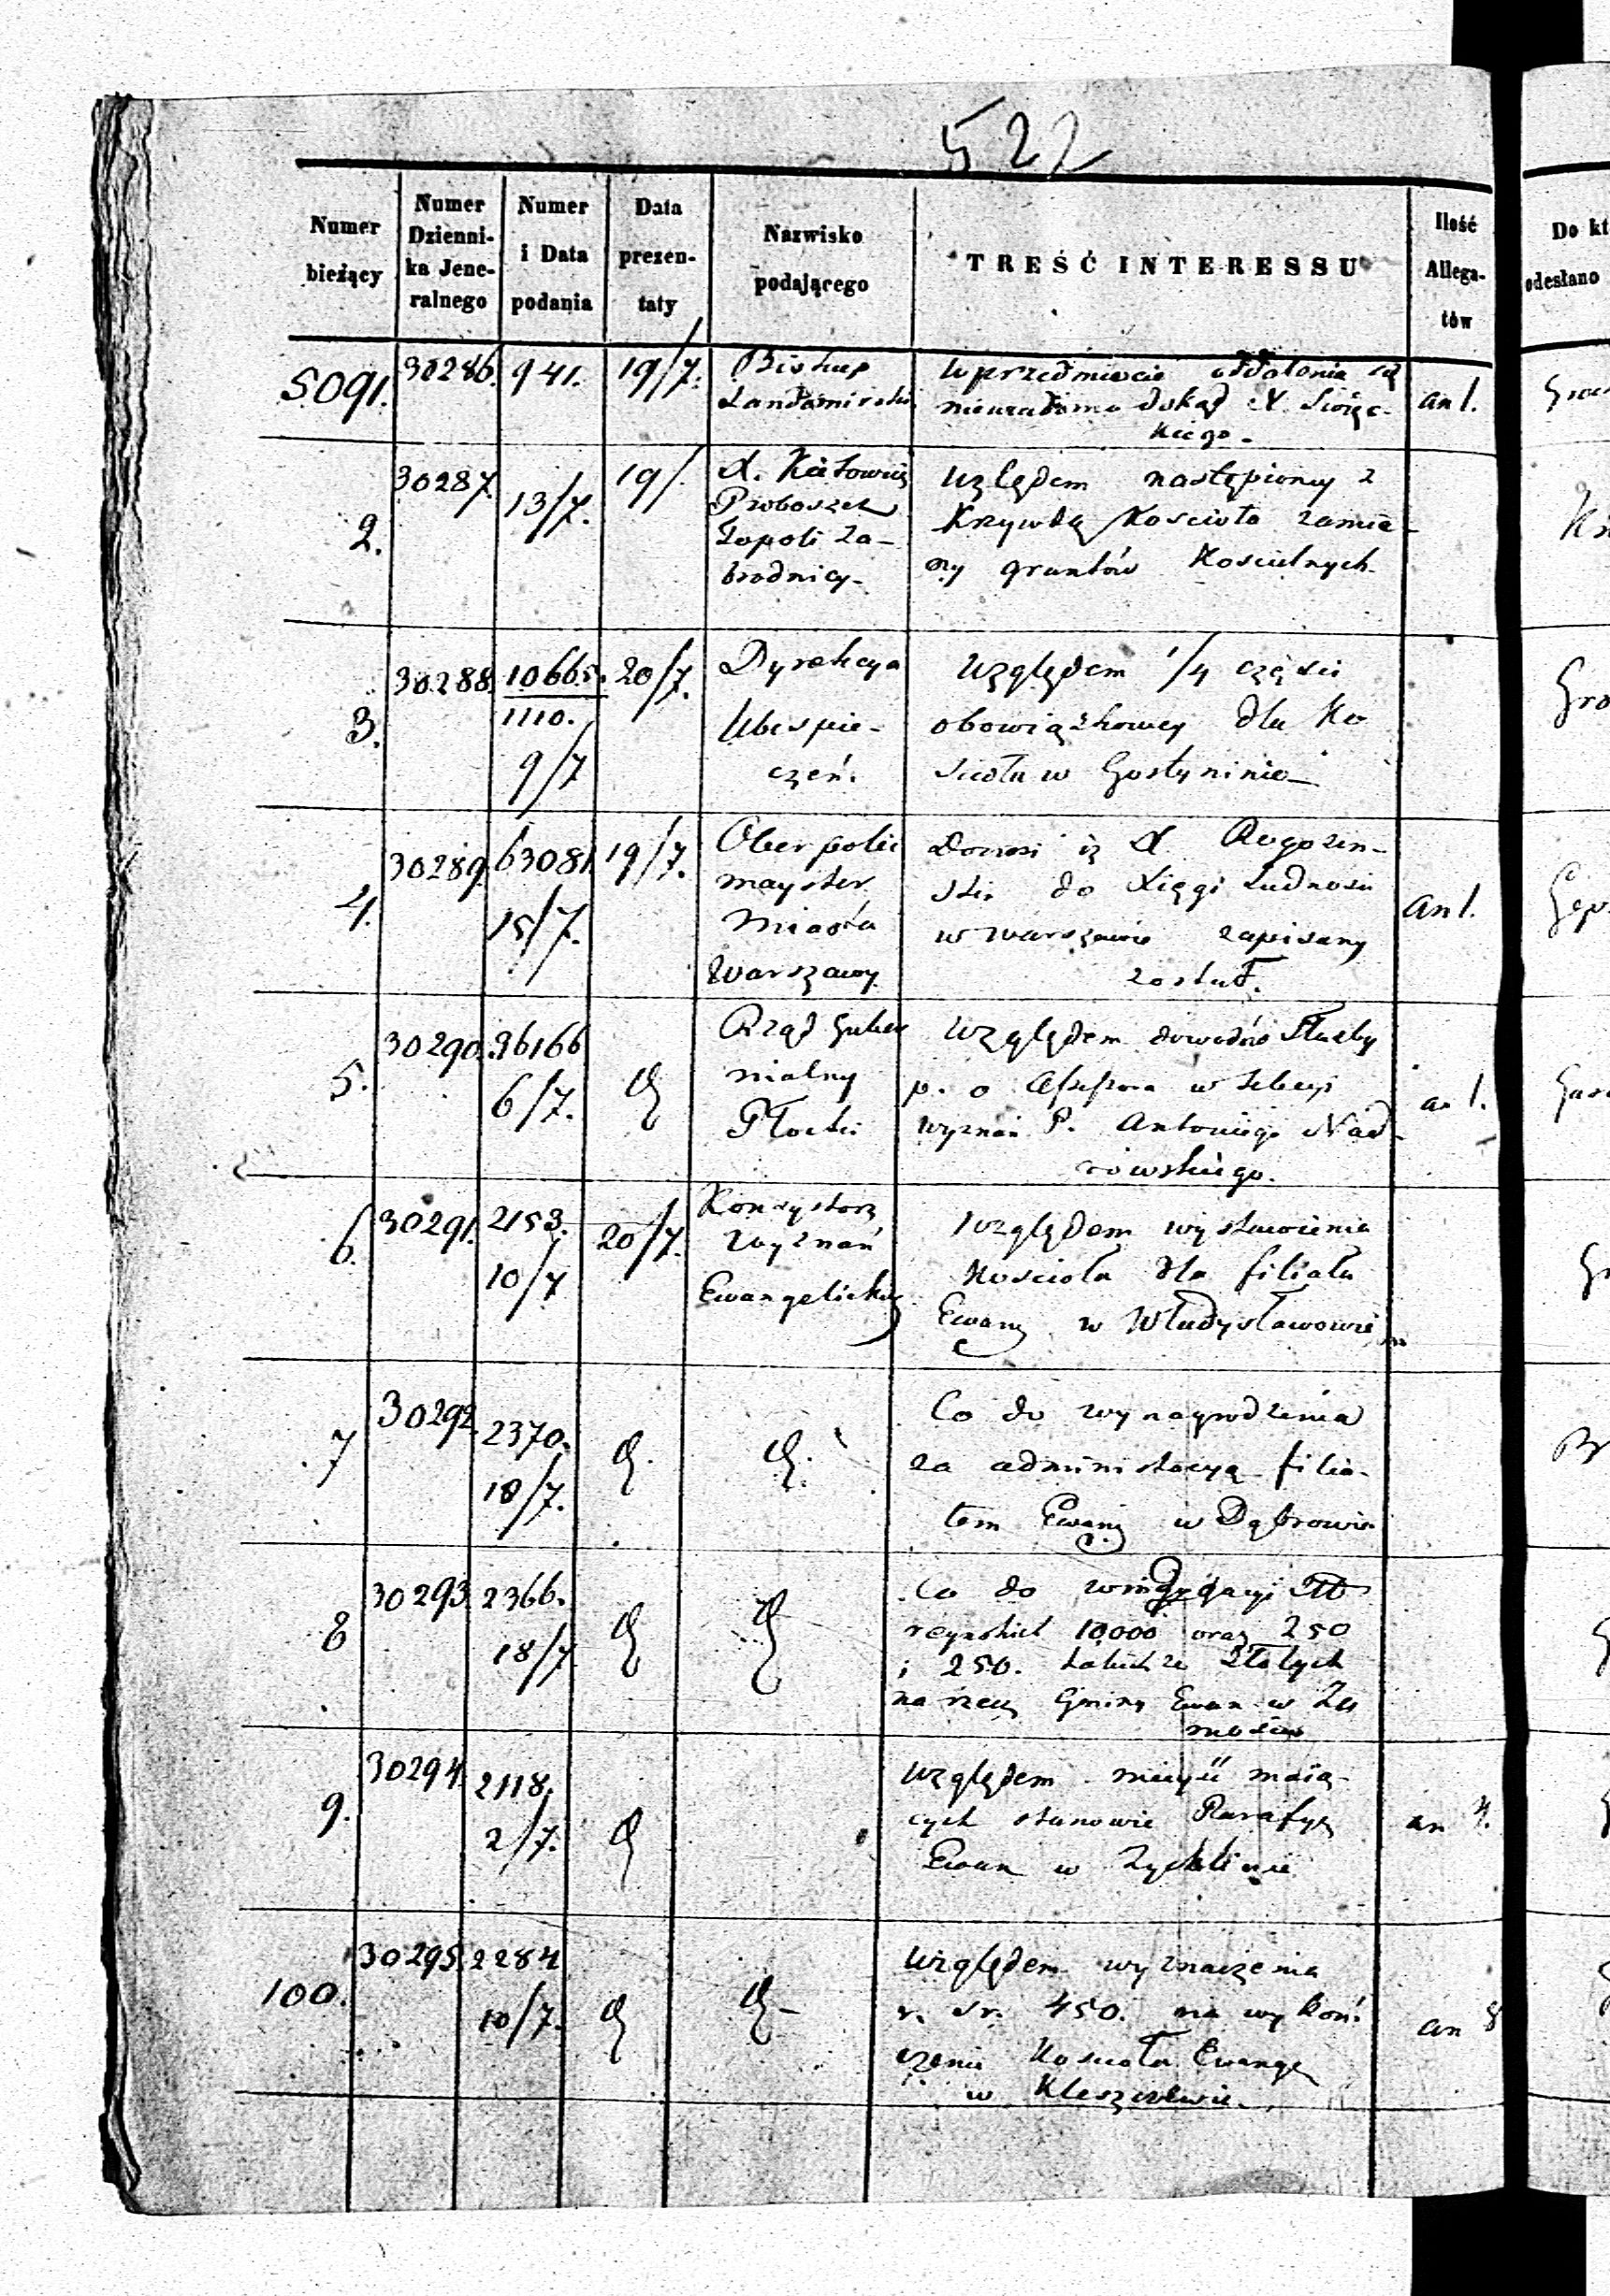 522
Numer bieżący
Numer Dzienni-ka Jene-ralnego
Numer i Data podania
Data prezen-taty
Nazwisko podającego
TREŚĆ INTERESSU
Ilość Allega-tów
Do kt
odesłano
5091. 30286. 941. 19/7. Biskup
Sandomirski
w przedmiocie oddalenia się
niewiadomo dokąd X. Święc-
kiego.
an 1.
2. 30287. 13/7. 19/.
X.
Proboszcz
Topoli Za-
brodnicy
względem nastąpioney z
Krzywdą Kościoła zamia-
ny gruntów Kościelnych
3. 30288. 10665.
1110.
9/7
20/7. Dyrekcya
Ubespie-
czeń.
względem 1/4 części
obowiązkowey dla Ko
ścioła w Gostyninie
4. 30289. 63081. 15/7. 19/7.
Oberpolic
mayster
Miasta
Warszawy
Donosi iż X. Rogozin-
ski do Xięgi Ludności
w Warszawie zapisany
został.
an 1.
5. 30290. 36166 6/7.
Rząd Guber
nialny
Płocki
względem dowodów Służby
p. o Assessora w Sekcyi
wyznań P. Antoniego Nad-
rowskiego.
an 1.
6. 30291. 2153. 10/7 20/7.
Konsystorz
Wyznań
Ewangelickich
względem wystawienia
Kościoła dla filiału
Ewang w Władysławowie
7 30292. 2370. 18/7.
Co do wynagrodzenia
za administracyą filia-
łem Ewang w Dąbrowie
8 30293 2366. 18/7
Co do
10,000 oraz 250
i 250. Złotych
na rzecz Gminy Ewan w Za
mościu
9. 30294. 2118. 2/7.
względem maią-
cych stanowić Parafyą
Ewan w Zychlinie
an 4.
100. 30295. 2284 10/7.
względem wyznaczenia
r. sr. 450. na wykoń-
czenie Kościoła Ewang
w
an 8